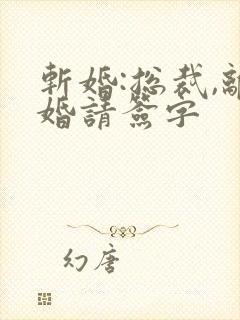 斬婚:总裁,離
婚請簽字
幻唐